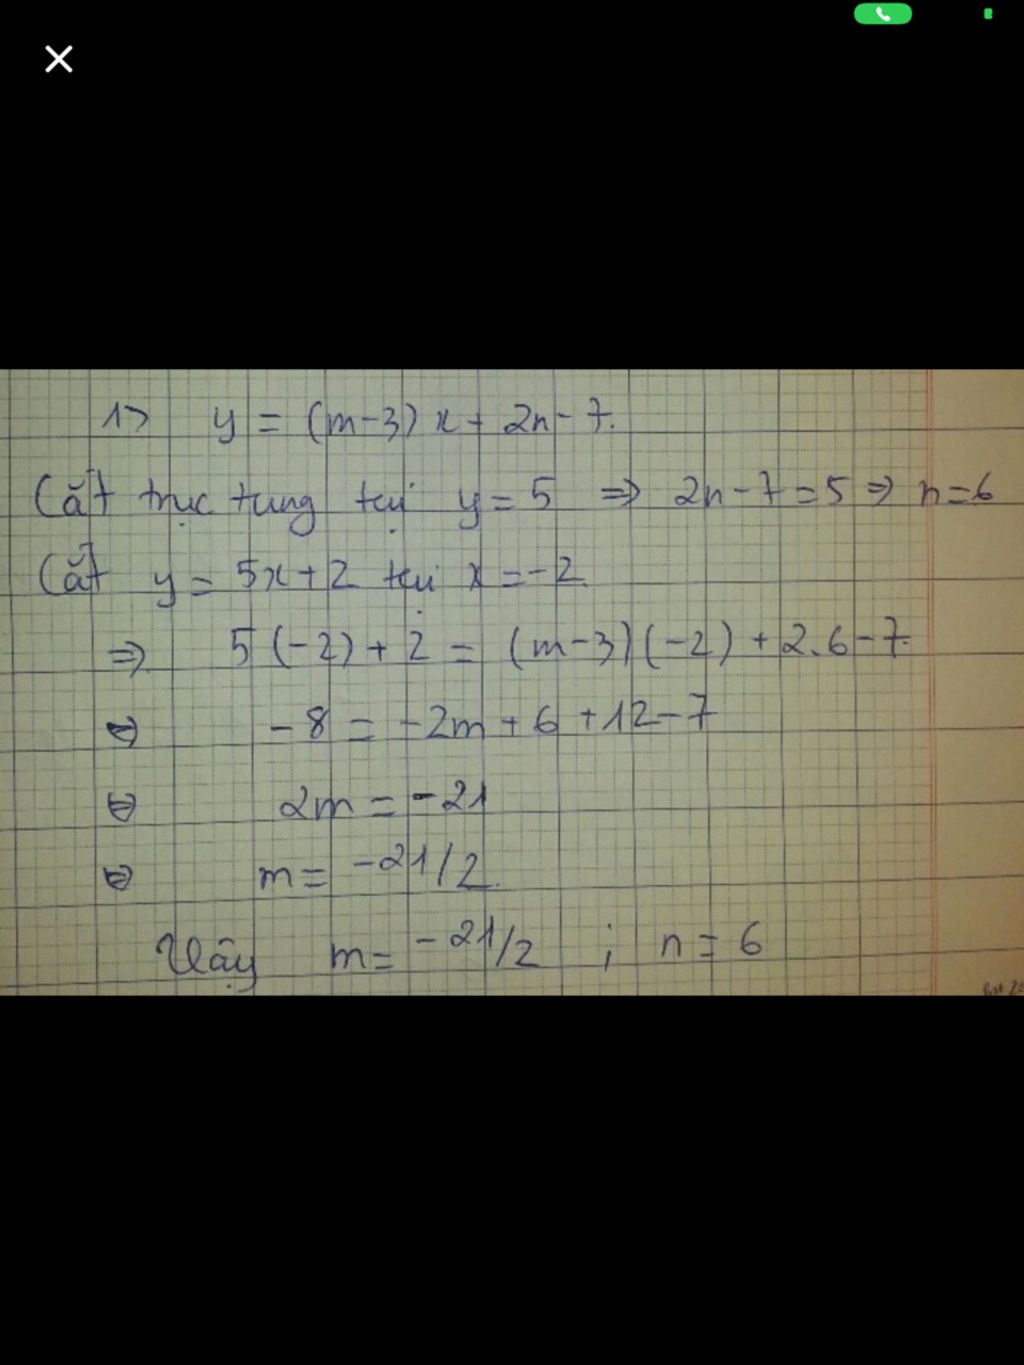 1> y = (m-3) x + 2n - 7.
Cắt trục tung tại y = 5 => 2n - 7 = 5 => n = 6
Cắt y = 5x + 2 tại x = -2.
=> 5 (-2) + 2 = (m-3)(-2) + 2.6 - 7.
<=> -8 = -2m + 6 + 12 - 7
<=> 2m = -21
<=> m = -21/2.
Vậy m = -21/2 ; n = 6